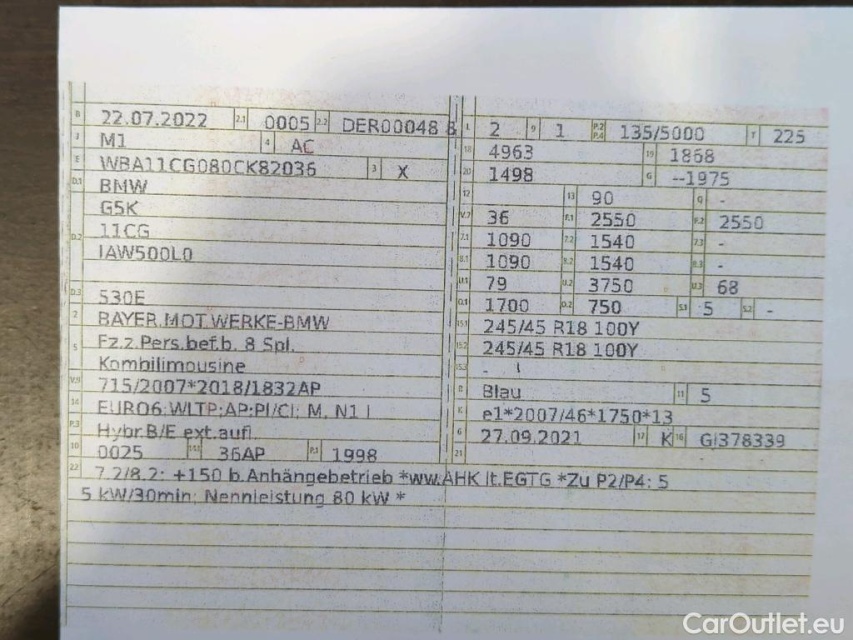 B 22.07.2022 2.1 0005 2.2 DER00048 8
J M1 4 AC
E WBA11CG080CK82036 3 X
D.1 BMW
G5K
D.2 11CG
IAW500L0
D.3 530E
2 BAYER.MOT.WERKE-BMW
5 Fz.z.Pers.bef.b. 8 Spl.
Kombilimousine
V.9 715/2007*2018/1832AP
14 EURO6;WLTP;AP;PI/CI; M, N1 I
P.3 Hybr.B/E ext.aufl
10 0025 14.1 36AP P.1 1998
L 2 9 1 P.2 P.4 135/5000 T 225
18 4963 19 1868
20 1498 G --1975
12 13 90 Q -
V.7 36 F.1 2550 F.2 2550
7.1 1090 7.2 1540 7.3 -
8.1 1090 8.2 1540 8.3 -
U.1 79 U.2 3750 U.3 68
O.1 1700 O.2 750 S.1 5 S.2 -
15.1 245/45 R18 100Y
15.2 245/45 R18 100Y
15.3 -
R Blau 11 5
K e1*2007/46*1750*13
6 27.09.2021 17 K 16 GI378339
21 -
22 7.2/8.2: +150 b.Anhängebetrieb *ww.AHK lt.EGTG *Zu P2/P4: 5
5 kW/30min; Nennleistung 80 kW *
CarOutlet.eu